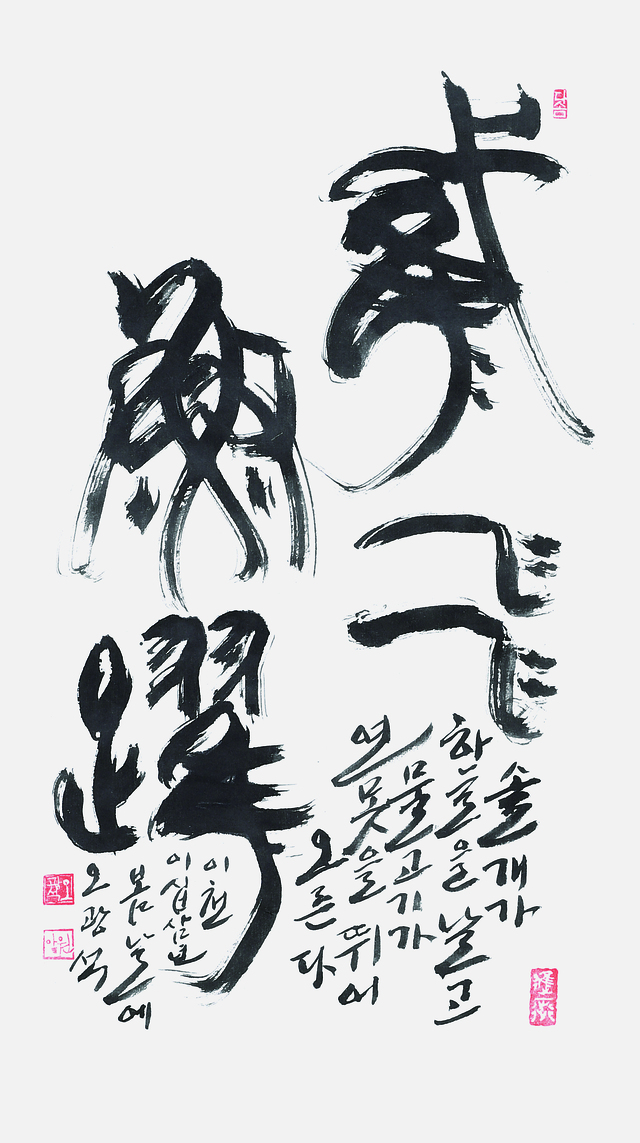 鳶飛
魚躍
솔개가
하늘을 날고
물고기가
연못을 뛰어
오른다
이천
이십삼년
봄날에
오광석